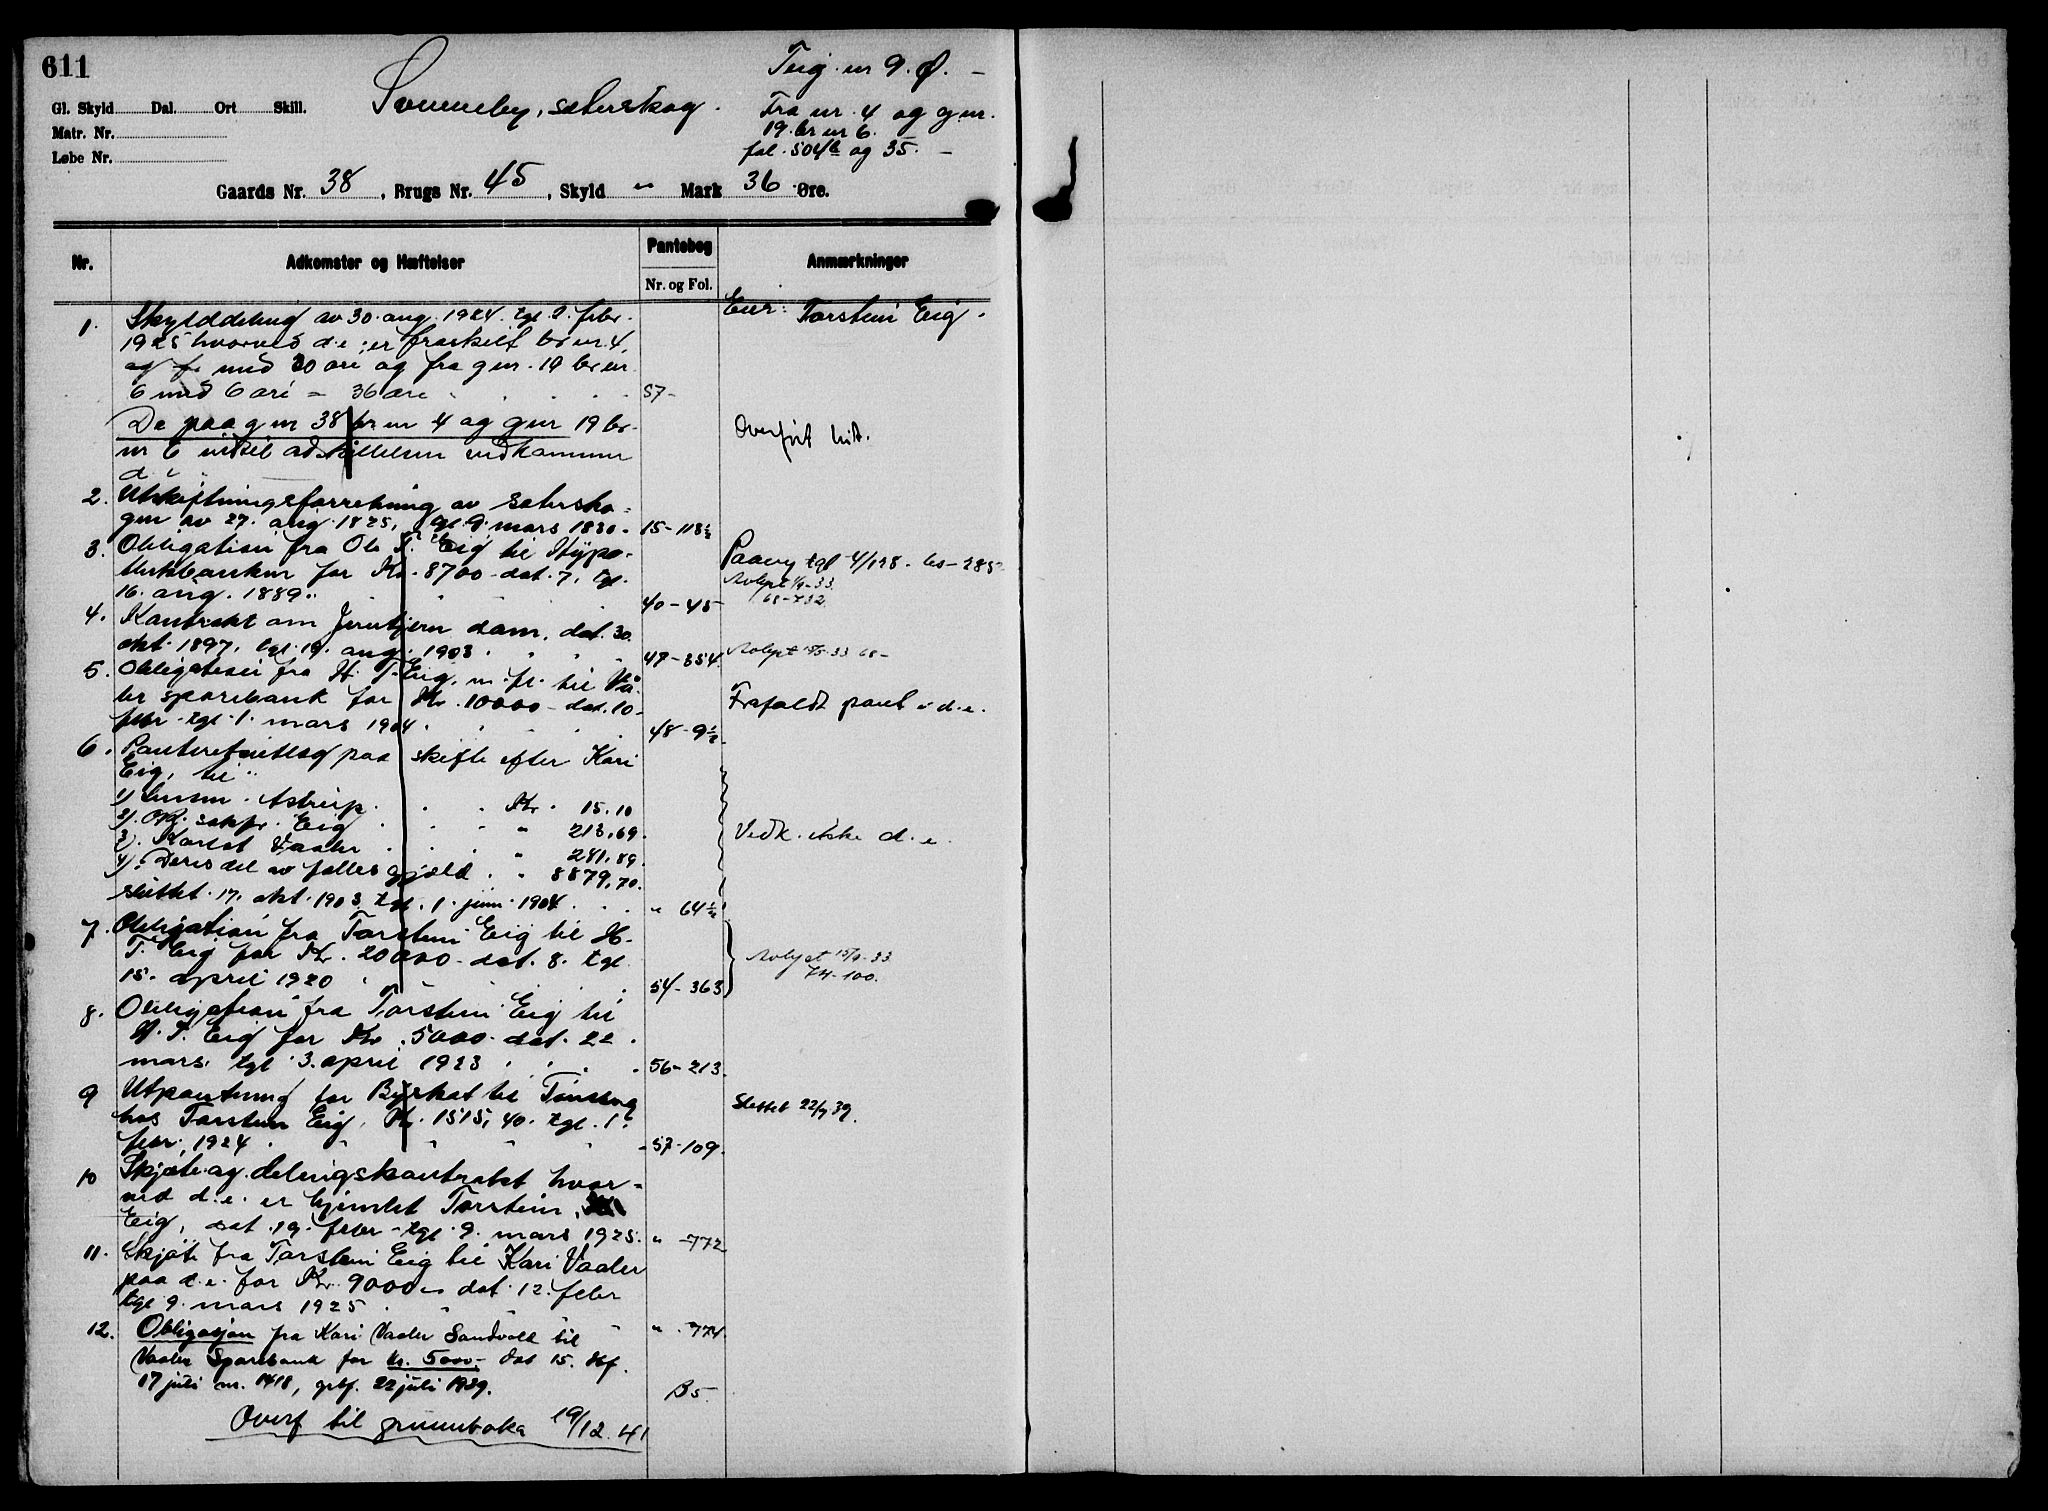 611
Teig nr 9. Ø. –
Gl. Skyld Dal. Ort Skill.
Sømmeby, sæterskog.
Fra nr. 4 og gnr.
Matr. Nr.
19 br nr 6.
Løbe Nr.
fol. 504b og 35. –
Gaards Nr. 38, Brugs Nr. 45, Skyld " Mark 36 Øre.
Nr. Adkomster og Hæftelser Pantebog Anmærkninger
Nr. og Fol.
1. Skylddeling av 30. aug. 1924. tgl. 9. febr. Eier: Torstein Eig.
1925 hvorved d.e. er fraskilt br nr. 4
og fr med 30 øre og fra gnr. 19 br nr
6 med 6 øre = 36 øre 57-
De paa gnr 38 br nr 4 og gnr 19 br- Overført hit.
nr 6 indtil adskillelsen vedkommer
d
2. Utskiftningsforretning avætersko-
gen av 27. aug. 1825, tgl. 9. mars 1830. 15-118½
3. Obligation fra Ole T. Eig til Hypo- Paaveg tgl 4/198.
thekbanken for Kr. 8700- dat. 7. tgl. Avlyst 33
16. aug. 1889. 40-45 68-732
4. Kontrakt om dam, dat. 30.
okt. 1897, tgl. 19. aug. 1903. 47-354. Avlyst 33 68-
5. Obligation fra H. T. Eig, m. fl. til Vå-
ler sparebank for Kr. 10000- dat. 10- Frafaldt pant i d.e.
febr. tgl. 1. mars 1904. 48-9½
6. Panterefutlæg paa skifte efter Kari
Eig, til
1) Lensm. Astrup. Kr. 15.10
2) O.R. sakfr. Eig " 213,69. Vedk. ikke d.e.
3) Karlot Vaaler " 281,89.
4) Deres del av fælles gjæld " 8879,70.
sluttet 17. okt. 1903. tgl. 1. juni 1904. " 64½
7. Obligation fra Torstein Eig til H.
T. Eig for Kr. 20000- dat. 8. tgl. Avlyst 33.
15. april 1920 54-363 74-100.
8. Obligation fra Torstein Eig til
H. T. Eig for Kr. 5000- dat. 22.
mars, tgl. 3. april 1923 56-213.
9 Utpantning for Byskat til Tønsberg Slettet 22/7 39.
hos Torstein Eig, Kr. 1515,40. tgl. 1.
febr. 1924. 57-109.
10 Skjøte og delingskontrakt hvor-
ved d.e. er hjemlet Torstein
Eig, dat. 19. febr- tgl. 9. mars 1925. " -772
11. Skjøte fra Torstein Eig til Kari Vaaler
paa d.e. for Kr. 9000- dat. 12. febr
tgl 9. mars 1925 " -774.
12. Obligasjon fra Kari Vaaler Sandvold til
Vaaler Sparebank for kr. 5000,- dat 15. dbf.
17 juli nr. 1418, grbf. 22 juli 1939. B5
Overf til grunnboka 19/12 41